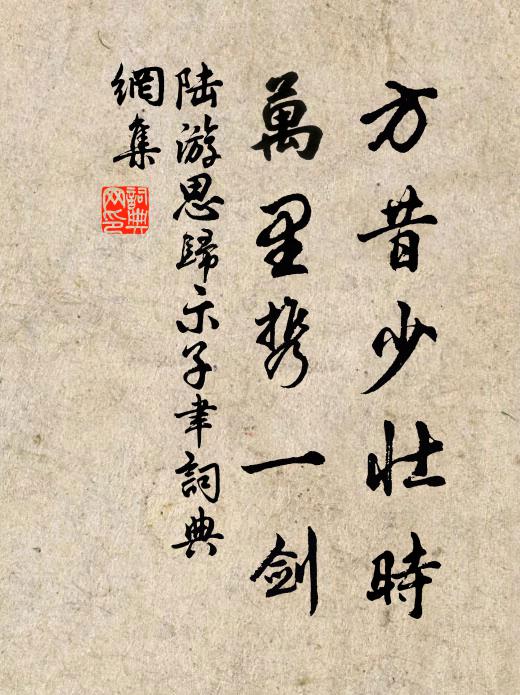 方昔少壯時
萬里携一剑
陆游思歸示子聿詞典
網集
詞典网印